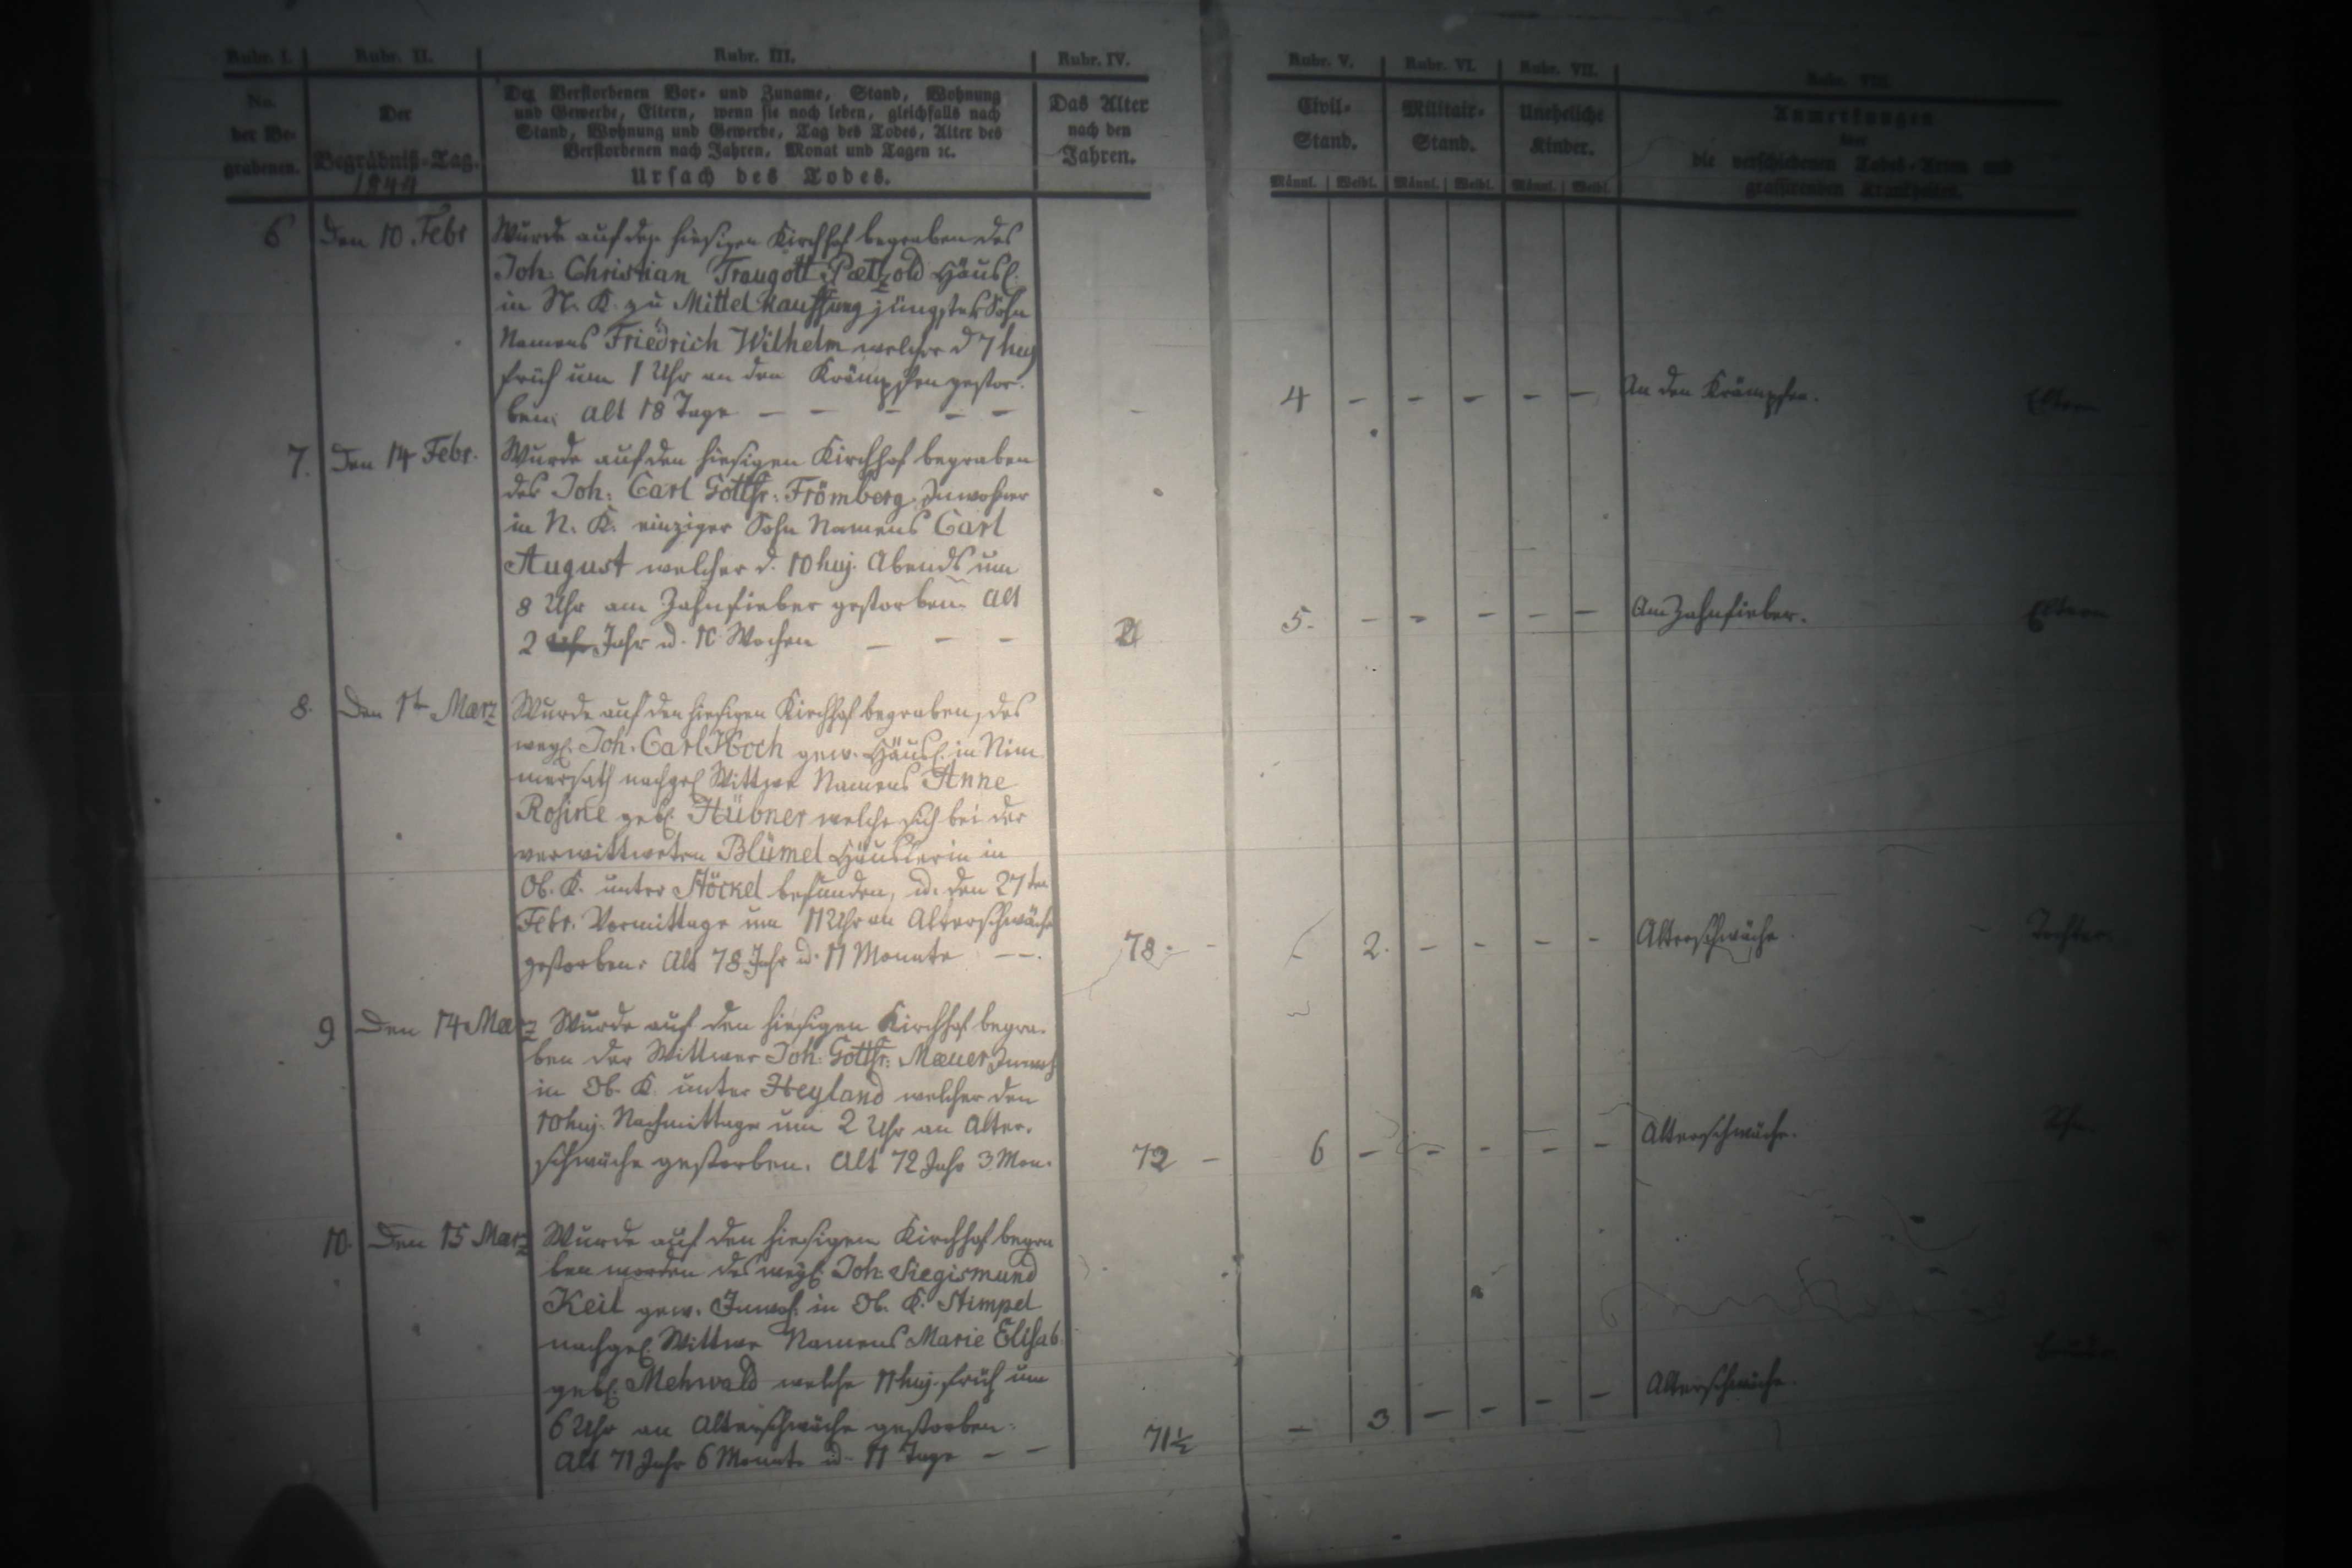 Rubr. I. Rubr. II. Rubr. III. Rubr. IV. Rubr. V. Rubr. VI. Rubr. VII. Rubr. VIII.
No.
der Be-
grabenen.
Der
Begräbniß-Tag.
1844
Der Verstorbenen Vor- und Zuname, Stand, Wohnung
und Gewerbe, Eltern, wenn sie noch leben, gleichfalls nach
Stand, Wohnung und Gewerbe, Tag des Todes, Alter des
Verstorbenen nach Jahren, Monat und Tagen ꝛc.
Ursach des Todes.
Das Alter
nach den
Jahren.
Civil-
Stand.
Männl. Weibl.
Militair-
Stand.
Männl. Weibl.
Uneheliche
Kinder.
Männl. Weibl.
Anmerkungen
über
die verschiedenen Todes-Arten und
grassirenden Krankheiten.
6 Den 10 Febr Wurde auf den hiesigen Kirchhof begraben des
Joh: Christian Traugott Pætzold Häusl.
in N. K. zu Mittel Kauffung jüngster Sohn
Namens Friedrich Wilhelm welcher d 7 huj
früh um 1 Uhr an den Krämpfen gestor-
ben. Alt 18 Tage — — — — —
- 4 - - - - - An den Krämpfen. Eltern
7. Den 14 Febr. Wurde auf den hiesigen Kirchhof begraben
des Joh: Carl Gottfr: Frömberg Inwohner
in N. K. einziger Sohn Namens Carl
August welcher d. 10 huj. Abends um
8 Uhr am Zahnfieber gestorben. Alt
2 Jahr u. 10 Wochen — — —
2 5. - - - - - Am Zahnfieber. Eltern
8. Den 1ten Marz Wurde auf den hiesigen Kirchhof begraben, des
weyl. Joh. Carl Koch gew. Häusl. in Nim
mersath nachgel Wittwe Namens Anne
Rosine geb. Hübner welche sich bei der
verwittweten Blümel Häuslerin in
Ob. K. unter Stöckel befunden, u. den 27ten
Febr. Vormittags um 11 Uhr an Altersschwäche
gestorben. Alt 78 Jahr u. 11 Monate — —.
78. - 2. - - - - Altersschwäche. Tochter.
9 Den 14 Marz Wurde auf den hiesigen Kirchhof begra-
ben der Wittwer Joh: Gottfr: Mæuer Inwoh
in Ob. K. unter Heyland welcher den
10 huj. Nachmittags um 2 Uhr an Alter-
schwäche gestorben. Alt 72 Jahr 3 Mon.
72 - 6 - - - - - Alterschwäche. Sohn.
10. Den 15 Marz Wurde auf den hiesigen Kirchhof begra
ben worden des weyl. Joh: Siegismund
Keil gew. Inwoh. in Ob. K. Stimpel
nachgel. Wittwe Namens Marie Elisab
geb. Mehwald welche 11 huj. früh um
6 Uhr an Altersschwäche gestorben.
Alt 71 Jahr 6 Monate u. 11 Tage — —
71½ - 3 - - - - Altersschwäche.